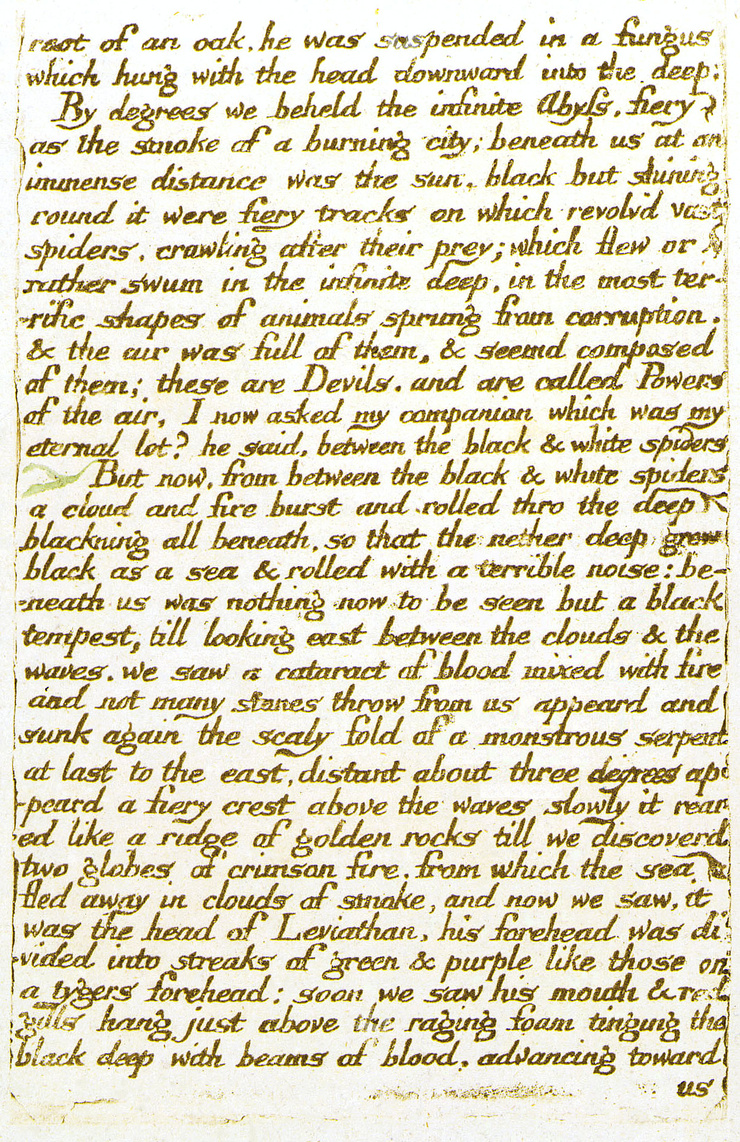 root of an oak. he was suspended in a fungus
which hung with the head downward into the deep:
By degrees we beheld the infinite Abyſs, fiery
as the smoke of a burning city; beneath us at an
immense distance was the sun, black but shining
round it were fiery tracks on which revolv'd vast
spiders, crawling after their prey; which flew or
rather swum in the infinite deep, in the most ter-
-rific shapes of animals sprung from corruption.
& the air was full of them, & seemd composed
of them; these are Devils. and are called Powers
of the air, I now asked my companion which was my
eternal lot? he said, between the black & white spiders
But now, from between the black & white spiders
a cloud and fire burst and rolled thro the deep
blackning all beneath, so that the nether deep grew
black as a sea & rolled with a terrible noise: be-
-neath us was nothing now to be seen but a black
tempest, till looking east between the clouds & the
waves. we saw a cataract of blood mixed with fire
and not many stones throw from us appeard and
sunk again the scaly fold of a monstrous serpent
at last to the east, distant about three degrees ap
-peard a fiery crest above the waves slowly it rear
ed like a ridge of golden rocks till we discoverd
two globes of crimson fire. from which the sea
fled away in clouds of smoke, and now we saw, it
was the head of Leviathan, his forehead was di
-vided into streaks of green & purple like those on
a tygers forehead: soon we saw his mouth & red
gills hang just above the raging foam tinging the
black deep with beams of blood, advancing toward
us